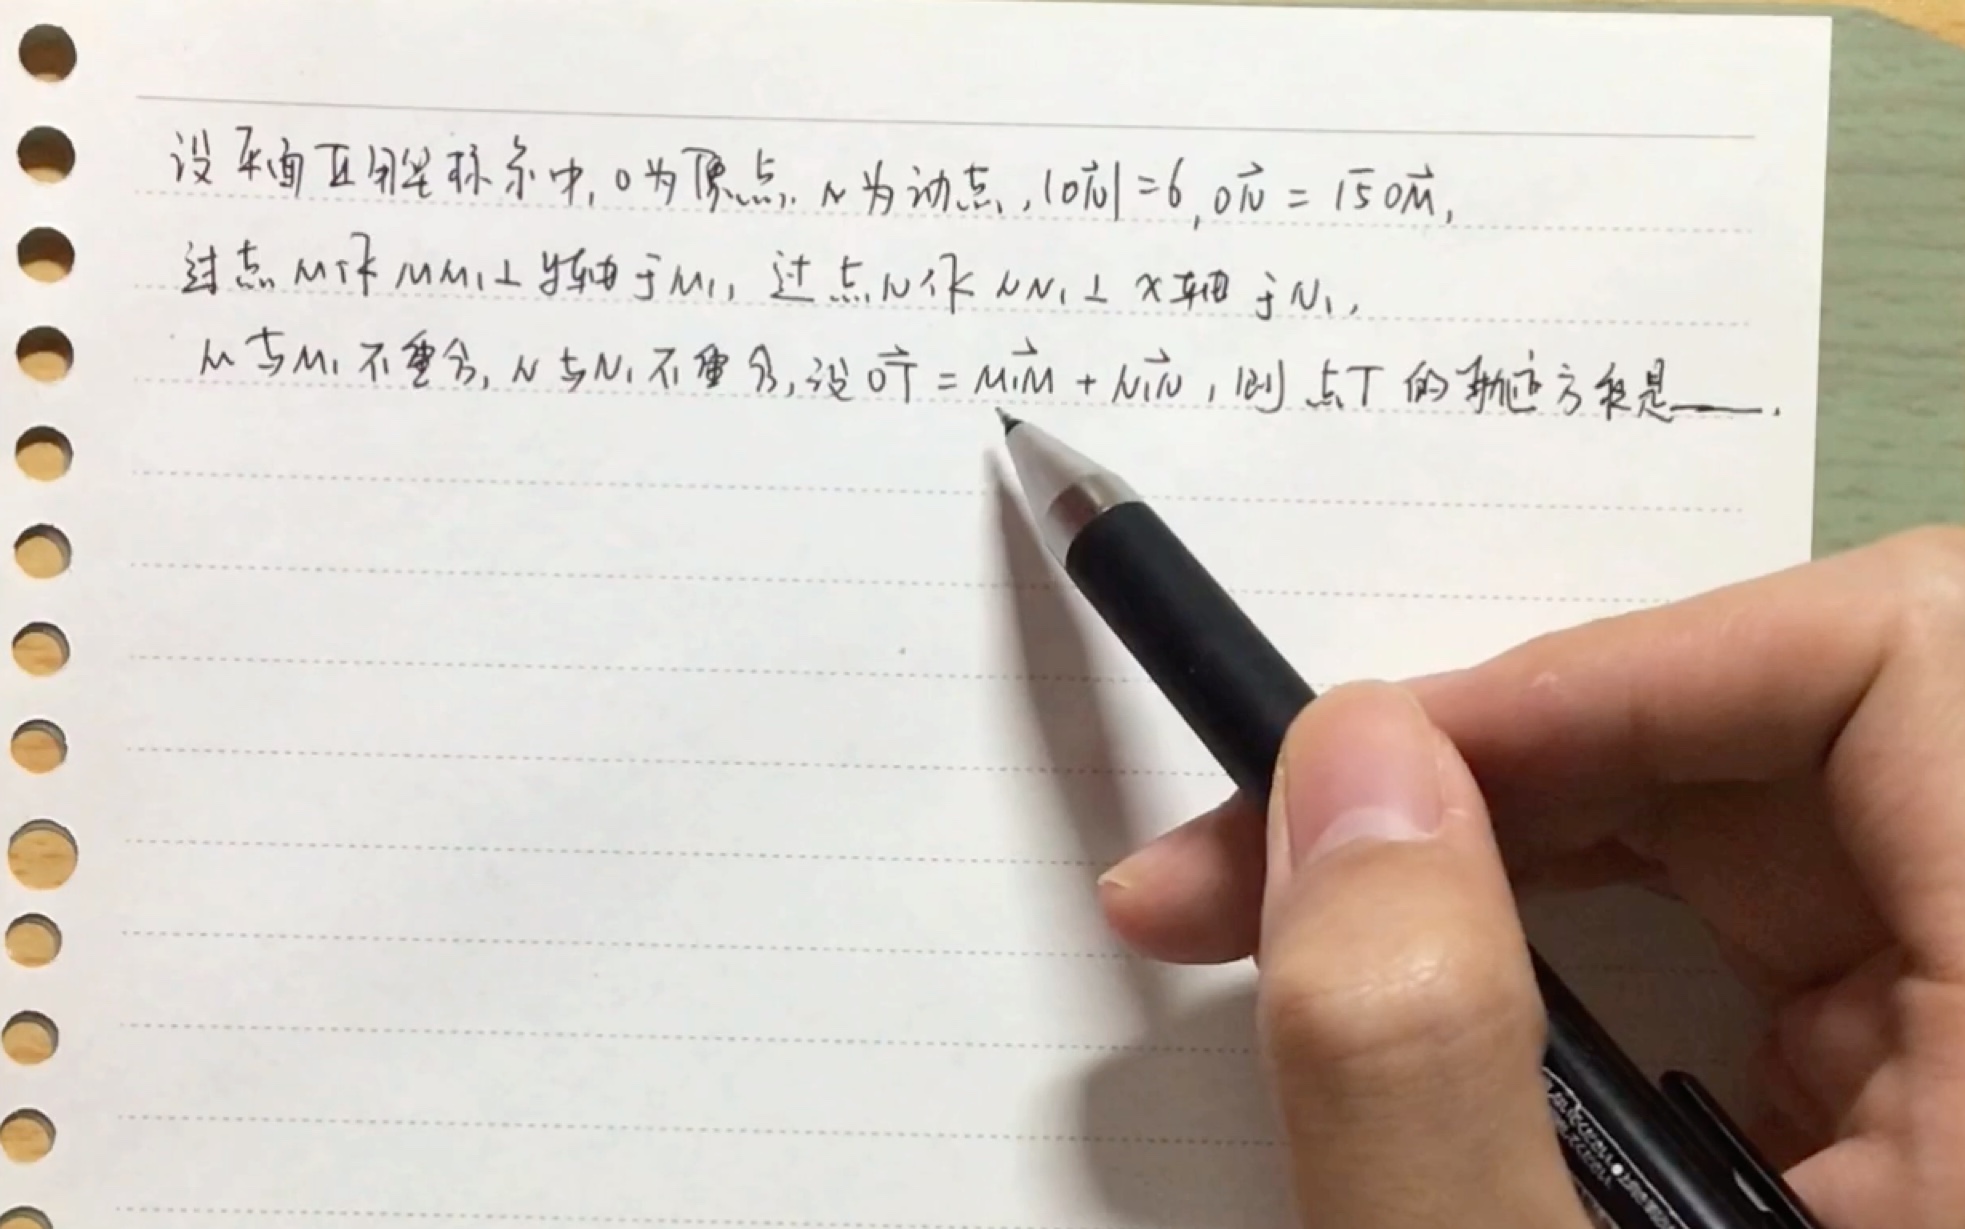 设平面直角坐标系中,O为原点,N为动点,|ON→|=6,ON→=√5OM→,
过点M作MM₁⊥y轴于M₁,过点N作NN₁⊥x轴于N₁,
M与M₁不重合,N与N₁不重合,设OT→=M₁M→+N₁N→,则点T的轨迹方程是___.